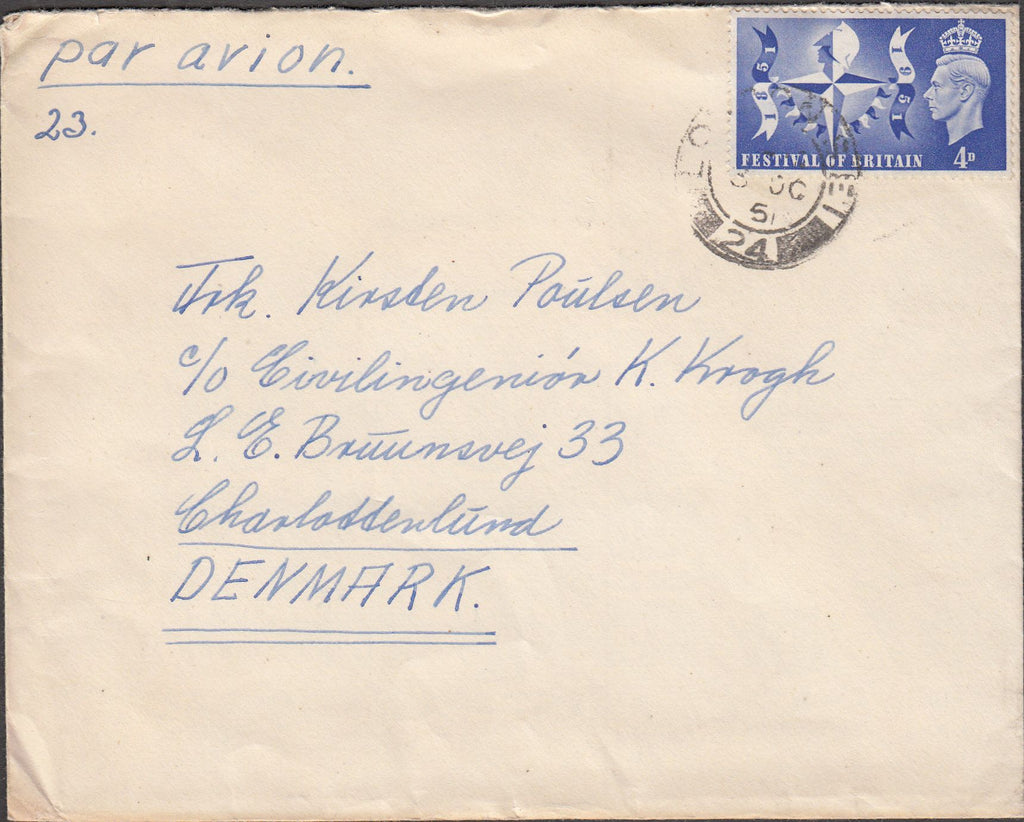 par avion.
23.
1851
1951
FESTIVAL OF BRITAIN 4D
OC
51
24
Frk. Kirsten Poulsen
c/o Civilingeniór K. Krogh
L. E. Bruunsvej 33
Charlottenlund
DENMARK.